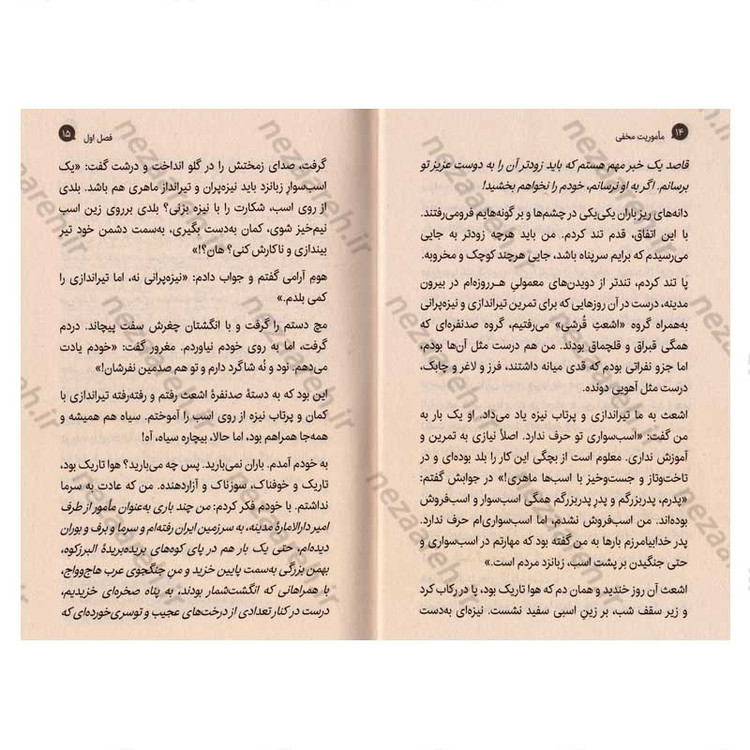 ۱۴ مأموریت مخفی
قاصد یک خبر مهم هستم که باید زودتر آن را به دوست عزیز تو
برسانم. اگر به او نرسانم، خودم را نخواهم بخشید!
دانه‌های ریز باران یکی‌یکی در چشم‌ها و بر گونه‌هایم فرومی‌رفتند.
با این اتفاق، قدم تند کردم. من باید هرچه زودتر به جایی
می‌رسیدم که برایم سرپناه باشد، جایی هرچند کوچک و مخروبه.
پا تند کردم، تندتر از دویدن‌های معمولیِ هرروزه‌ام در بیرون
مدینه، درست در آن روزهایی که برای تمرین تیراندازی و نیزه‌پرانی
به‌همراه گروه «اشعثِ قُرشی» می‌رفتیم، گروه صدنفره‌ای که
همگی قبراق و قلچماق بودند. من هم درست مثل آن‌ها بودم،
اما جزو نفراتی بودم که قدی میانه داشتند، فرز و لاغر و چابک،
درست مثل آهویی دونده.
اشعث به ما تیراندازی و پرتاب نیزه یاد می‌داد. او یک بار به
من گفت: «اسب‌سواری تو حرف ندارد. اصلاً نیازی به تمرین و
آموزش نداری. معلوم است از بچگی این کار را بلد بوده‌ای و در
تاخت‌وتاز و جست‌وخیز با اسب‌ها ماهری!» در جوابش گفتم:
«پدرم، پدربزرگم و پدرِ پدربزرگم همگی اسب‌سوار و اسب‌فروش
بوده‌اند. من اسب‌فروش نشدم، اما اسب‌سواری‌ام حرف ندارد.
پدر خدابیامرزم بارها به من گفته بود که مهارتم در اسب‌سواری و
حتی جنگیدن بر پشت اسب، زبانزد مردم است.»
اشعث آن روز خندید و همان دم که هوا تاریک بود، پا در رکاب کرد
و زیر سقف شب، بر زینِ اسبی سفید نشست. نیزه‌ای به‌دست
فصل اول ۱۵
گرفت، صدای زمختش را در گلو انداخت و درشت گفت: «یک
اسب‌سوارِ زبانزد باید نیزه‌پران و تیرانداز ماهری هم باشد. بلدی
از روی اسب، شکارت را با نیزه بزنی؟ بلدی برروی زین اسب
نیم‌خیز شوی، کمان به‌دست بگیری، به‌سمت دشمن خود تیر
بیندازی و ناکارش کنی؟ هان؟!»
هومِ آرامی گفتم و جواب دادم: «نیزه‌پرانی نه، اما تیراندازی را
کمی بلدم.»
مچ دستم را گرفت و با انگشتان چغرش سفت پیچاند. دردم
گرفت، اما به روی خودم نیاوردم. مغرور گفت: «خودم یادت
می‌دهم. نود و نُه شاگرد دارم و تو هم صدمین نفرشان!»
این بود که به دستهٔ صدنفرهٔ اشعث رفتم و رفته‌رفته تیراندازی با
کمان و پرتاب نیزه از روی اسب را آموختم. سیاه هم همیشه و
همه‌جا همراهم بود، اما حالا، بیچاره سیاه، آه!
به خودم آمدم. باران نمی‌بارید. پس چه می‌بارید؟ هوا تاریک بود،
تاریک و خوفناک، سوزناک و آزاردهنده. من که عادت به سرما
نداشتم. با خودم فکر کردم: من چند باری به‌عنوان مأمور از طرف
امیر دارالامارهٔ مدینه، به سرزمین ایران رفته‌ام و سرما و برف و بوران
دیده‌ام، حتی یک بار هم در پای کوه‌های بریده‌بریدهٔ البرزکوه،
بهمن بزرگی به‌سمت پایین خزید و منِ جنگجوی عرب هاج‌وواج،
با همراهانی که انگشت‌شمار بودند، به پناه صخره‌ای خزیدیم،
درست در کنار تعدادی از درخت‌های عجیب و توسری‌خورده‌ای که
nezaareh.ir